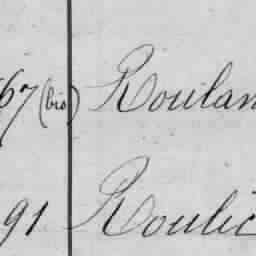 67 (bis) Roulan
91 Roulic